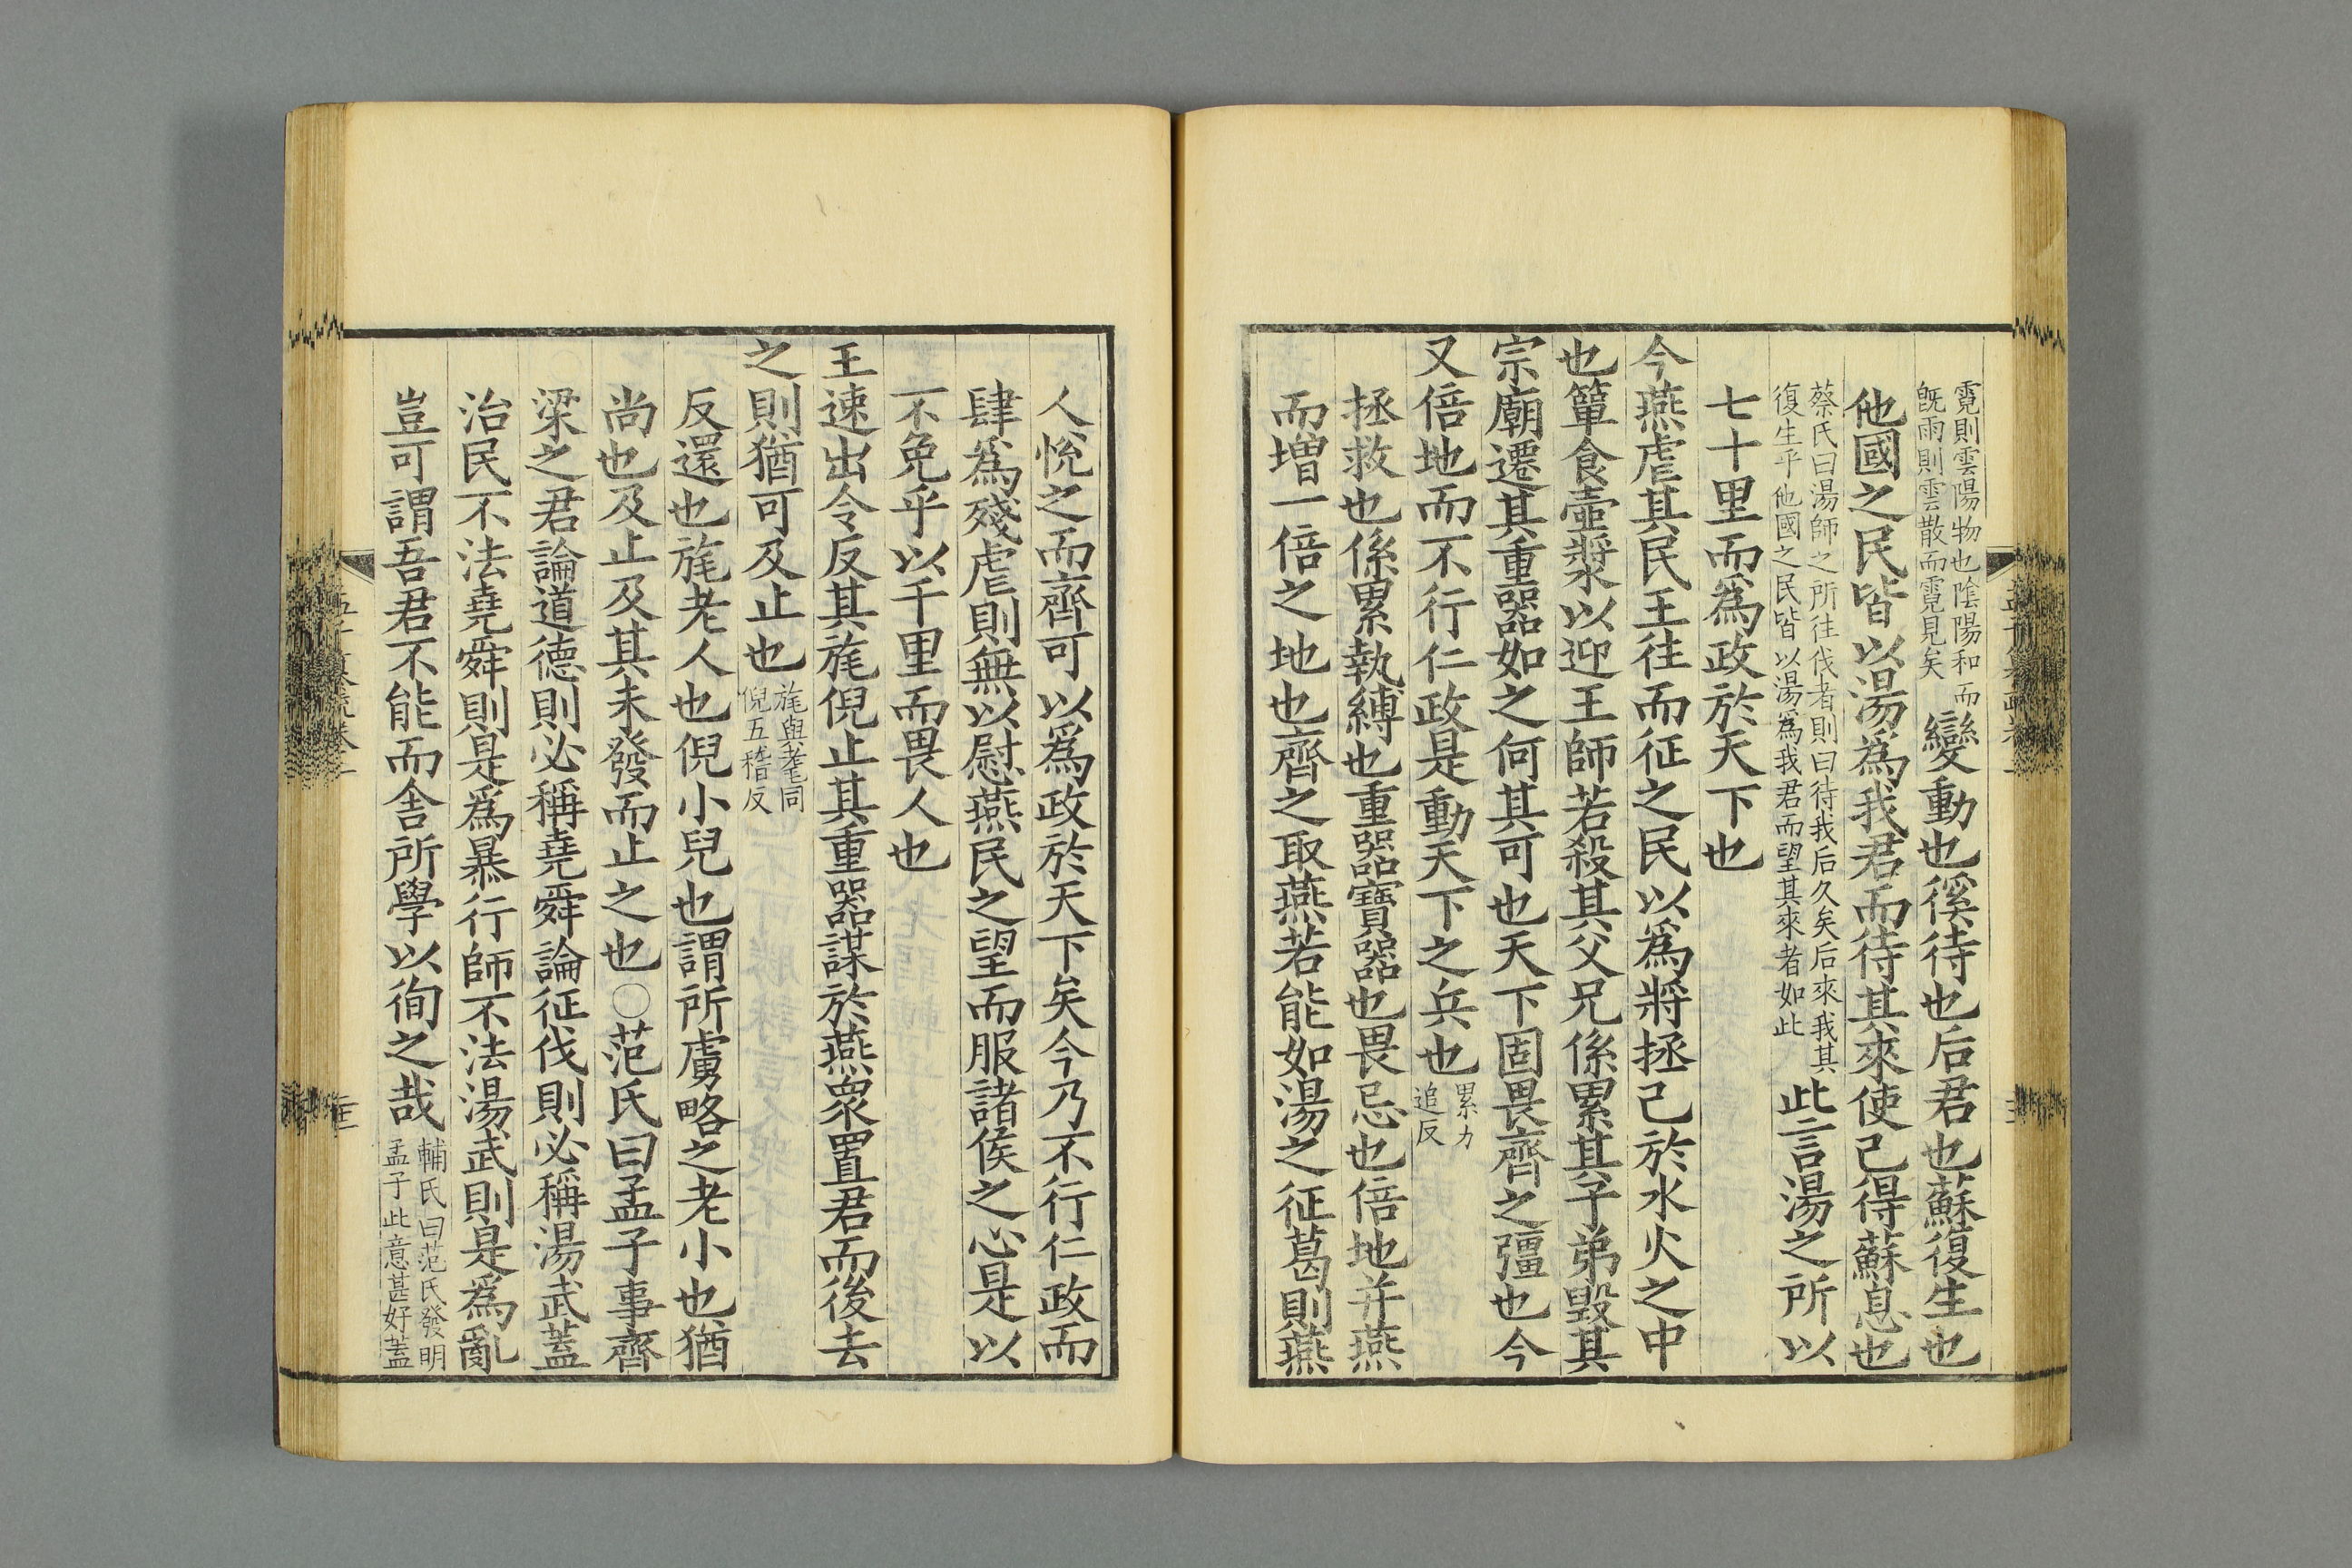 霓則雲陽物也陰陽和而
旣雨則雲散而霓見矣
變動也徯待也后君也蘇復生也
他國之民皆以湯爲我君而待其來使己得蘇息也
蔡氏曰湯師之所往伐者則曰待我后久矣后來我其
復生乎他國之民皆以湯爲我君而望其來者如此
此言湯之所以
七十里而爲政於天下也
今燕虐其民王往而征之民以爲將拯己於水火之中
也簞食壺漿以迎王師若殺其父兄係累其子弟毀其
宗廟遷其重器如之何其可也天下固畏齊之彊也今
又倍地而不行仁政是動天下之兵也
累力
追反
拯救也係累執縛也重器寶器也畏忌也倍地并燕
而增一倍之地也齊之取燕若能如湯之征葛則燕
人悅之而齊可以爲政於天下矣今乃不行仁政而
肆爲殘虐則無以慰燕民之望而服諸侯之心是以
不免乎以千里而畏人也
王速出令反其旄倪止其重器謀於燕衆置君而後去
之則猶可及止也
旄與耄同
倪五稽反
反還也旄老人也倪小兒也謂所虜略之老小也猶
尚也及止及其未發而止之也○范氏曰孟子事齊
梁之君論道德則必稱堯舜論征伐則必稱湯武蓋
治民不法堯舜則是爲暴行師不法湯武則是爲亂
豈可謂吾君不能而舍所學以徇之哉
輔氏曰范氏發明
孟子此意甚好蓋